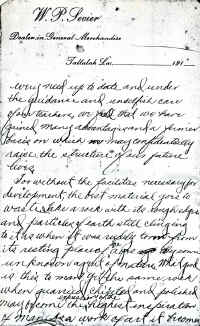 W. P. Sevier
Dealer in General Merchandise
Tallulah La. 191
every need up to date and under
the guidance and unselfish care
of our teachers, we feel that we have
gained many advantages and a firmer
basis on which we may confidently
raise the structure of our future
lives.
For without the facilities necessary for
development, the best material goes to
waste like a rock with its rough edges
and particles of earth still clinging
to it as when it was rudely torn from
its resting place
unknown agent of nature. What good
is this to man? Yet the same rock
when quarried chiseled and polished
may become the highest inspiration
of man as a work of art. It becomes